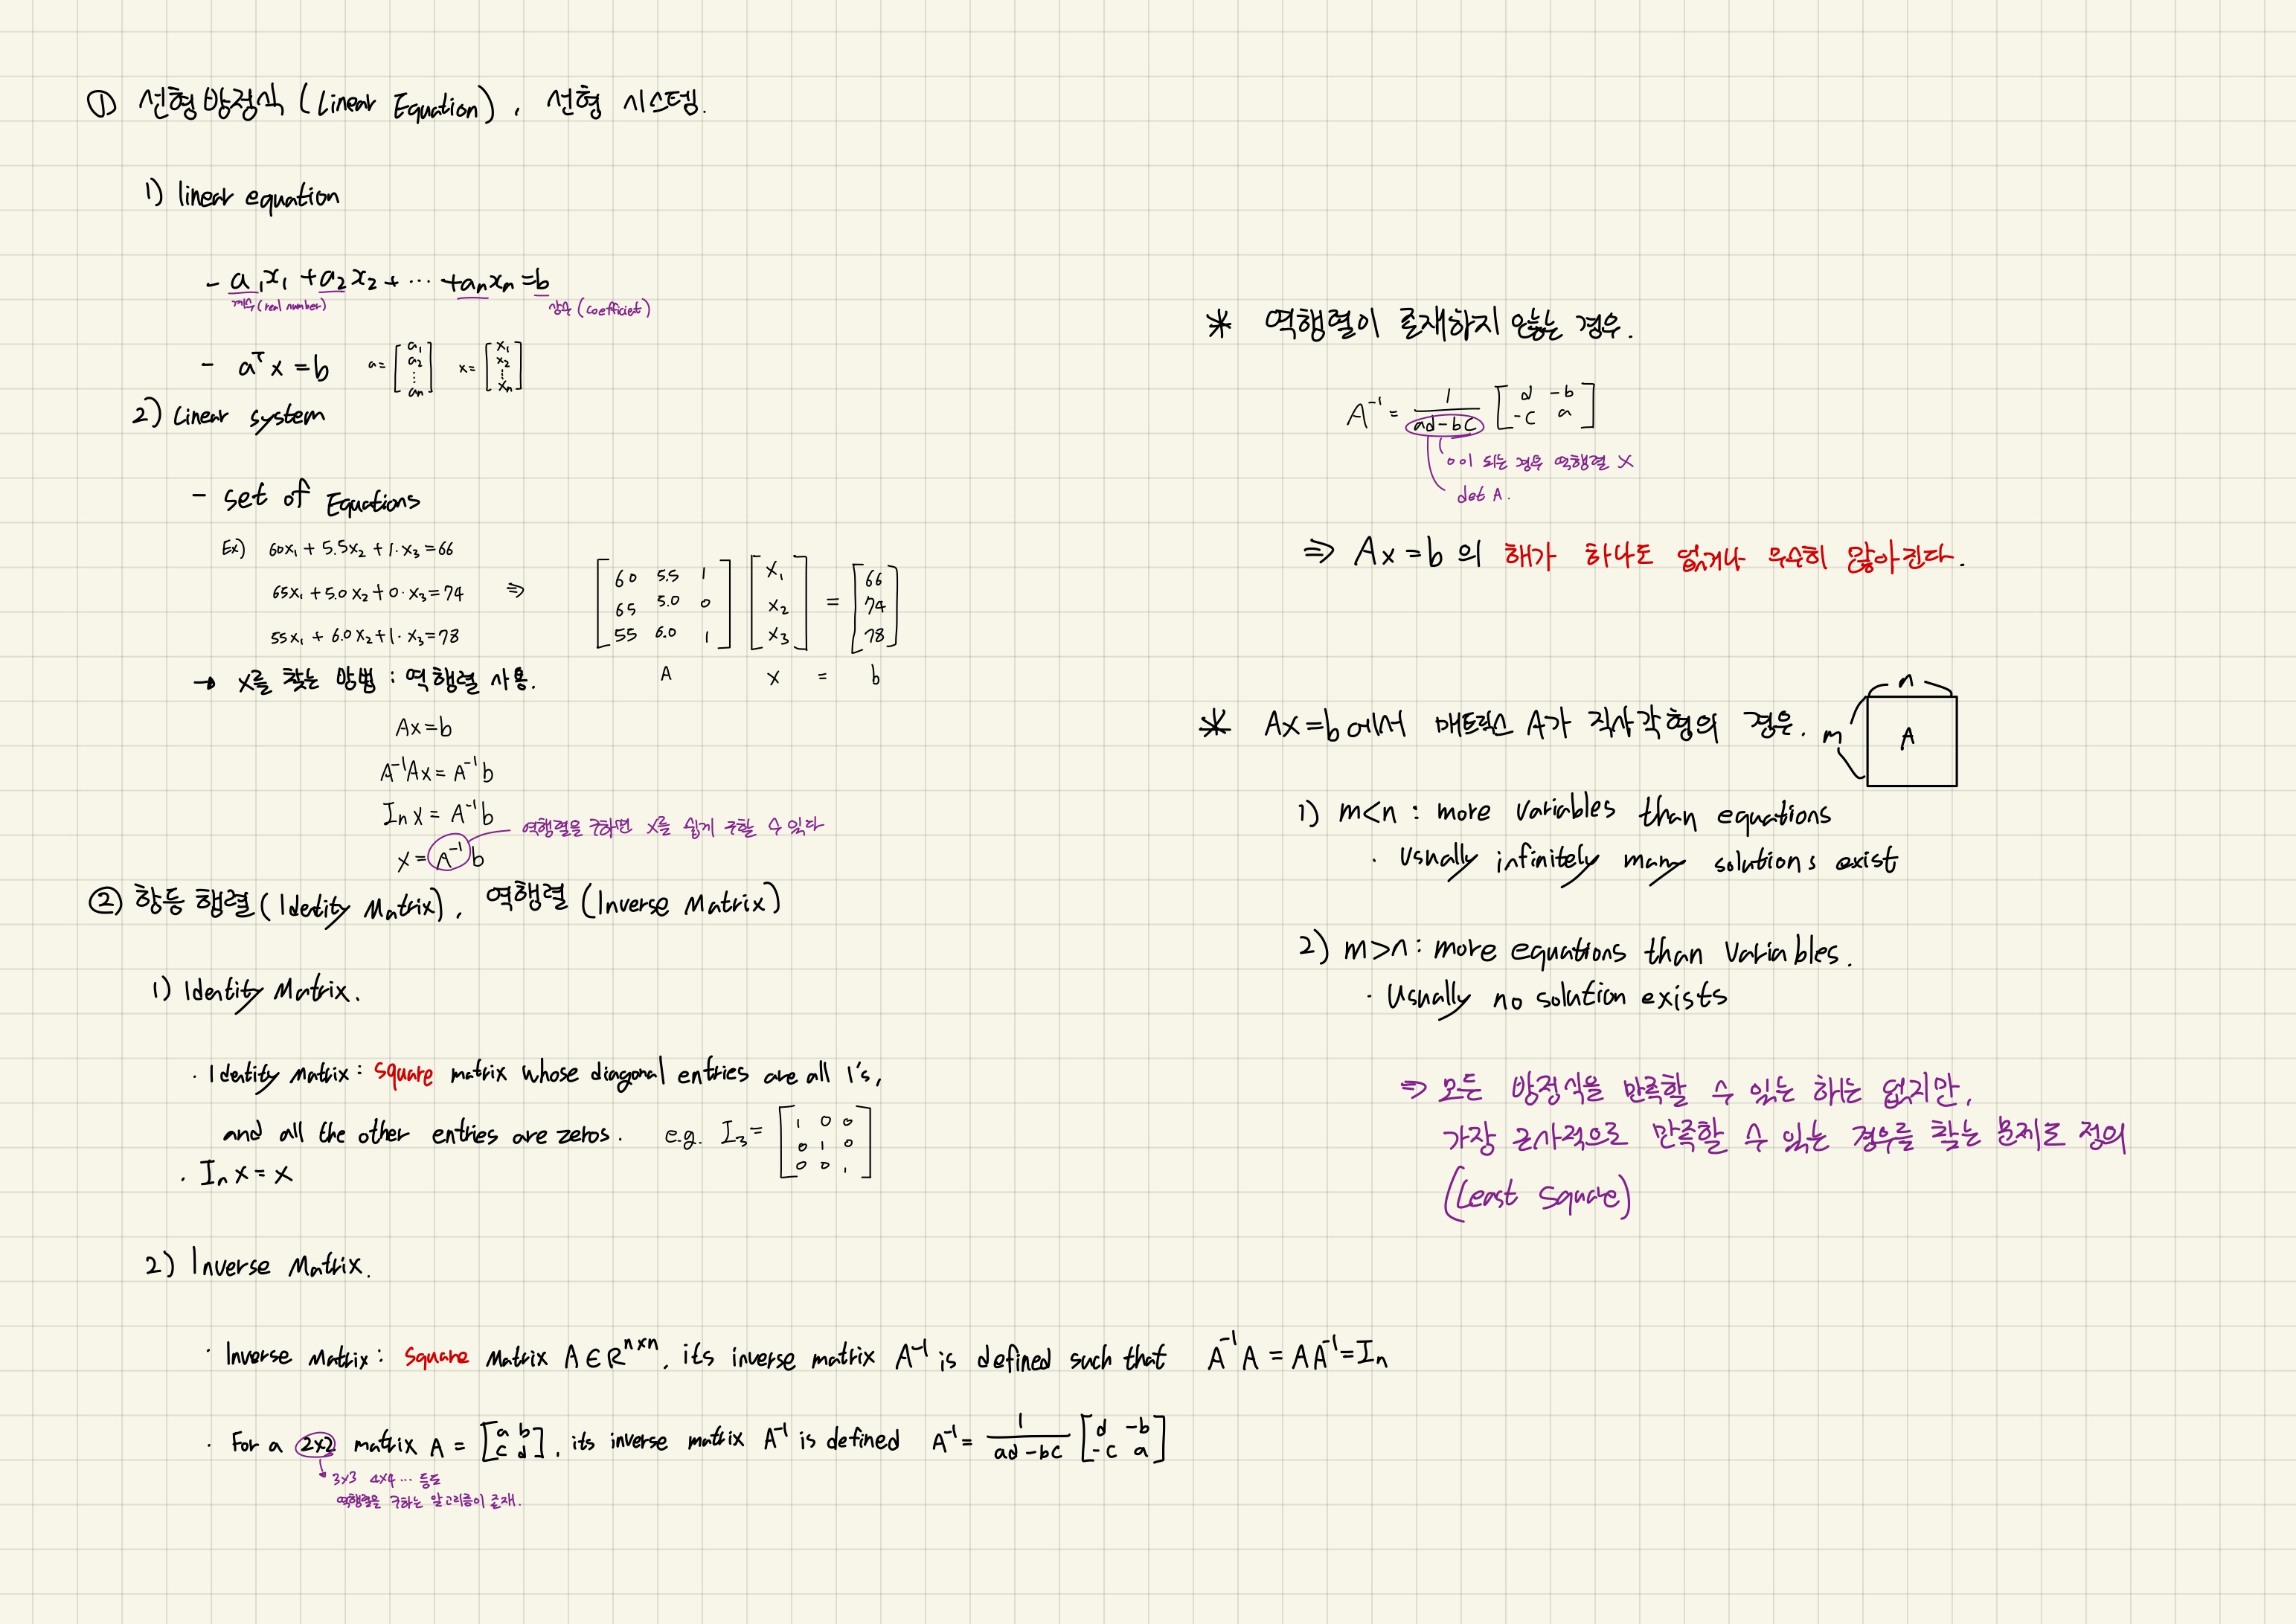 ① 선형방정식 (Linear Equation), 선형 시스템.
1) linear equation
- a₁x₁ + a₂x₂ + ⋯ + aₙxₙ = b
계수 (real number) 상수 (coefficient)
- aᵀx = b a = [a₁ a₂ ⋮ aₙ] x = [x₁ x₂ ⋮ xₙ]
2) Linear system
- set of Equations
Ex) 60x₁ + 5.5x₂ + 1·x₃ = 66
65x₁ + 5.0x₂ + 0·x₃ = 74 ⇒
55x₁ + 6.0x₂ + 1·x₃ = 78
[60 5.5 1] [x₁] [66]
[65 5.0 0] [x₂] = [74]
[55 6.0 1] [x₃] [78]
A x = b
→ x를 찾는 방법 : 역행렬 사용.
Ax = b
A⁻¹Ax = A⁻¹b
Iₙx = A⁻¹b
x = A⁻¹b 역행렬을 구하면 x를 쉽게 구할 수 있다
② 항등 행렬 (Identity Matrix), 역행렬 (Inverse Matrix)
1) Identity Matrix.
· Identity Matrix : square matrix whose diagonal entries are all 1's,
and all the other entries are zeros. e.g. I₃ = [1 0 0
0 1 0
0 0 1]
· Iₙx = x
2) Inverse Matrix.
· Inverse Matrix : square Matrix A ∈ Rⁿˣⁿ, its inverse matrix A⁻¹ is defined such that A⁻¹A = AA⁻¹ = Iₙ
· For a 2x2 matrix A = [a b
c d], its inverse matrix A⁻¹ is defined A⁻¹ = 1/(ad-bc) [d -b
-c a]
3x3 4x4 ⋯ 등도
역행렬을 구하는 알고리즘이 존재.
* 역행렬이 존재하지 않는 경우.
A⁻¹ = 1/(ad-bc) [d -b
-c a]
0이 되는 경우 역행렬 X
det A.
⇒ Ax = b 의 해가 하나도 없거나 무수히 많아진다.
* Ax = b 에서 매트릭스 A가 직사각형의 경우. m n A
1) m<n : more variables than equations
· Usually infinitely many solutions exist
2) m>n : more equations than variables.
· Usually no solution exists
⇒ 모든 방정식을 만족할 수 있는 해는 없지만,
가장 근사적으로 만족할 수 있는 경우를 찾는 문제로 정의
(Least Square)